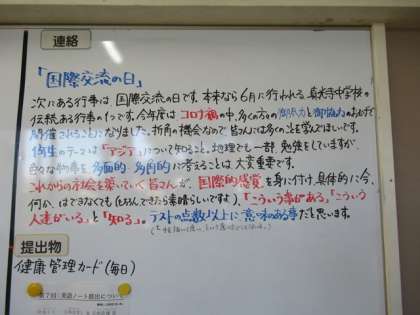 連絡
「国際交流の日」
次にある行事は、国際交流の日です。本来なら6月に行われる、真美ヶ丘中学校の
伝統ある行事の1つです。今年度はコロナ禍の中、多くの方々の御尽力と御協力のおかげで
開催されることになりました。折角の機会なので皆さんには多くのことを学んでほしいです。
1年生のテーマは「アジア」について知ること。地理でも一部、勉強をしていますが、
色々な物事を多面的・多角的に考えることは大変重要です。
これからの社会を築いていく皆さんが、国際的感覚を身に付け、具体的に今、
何か、はできなくても(もちろんできたら素晴らしいですよ)、「こういう事がある」「こういう
人達がいる」と「知る」。テストの点数以上に意味のある事だと思います。
提出物
健康管理カード(毎日)